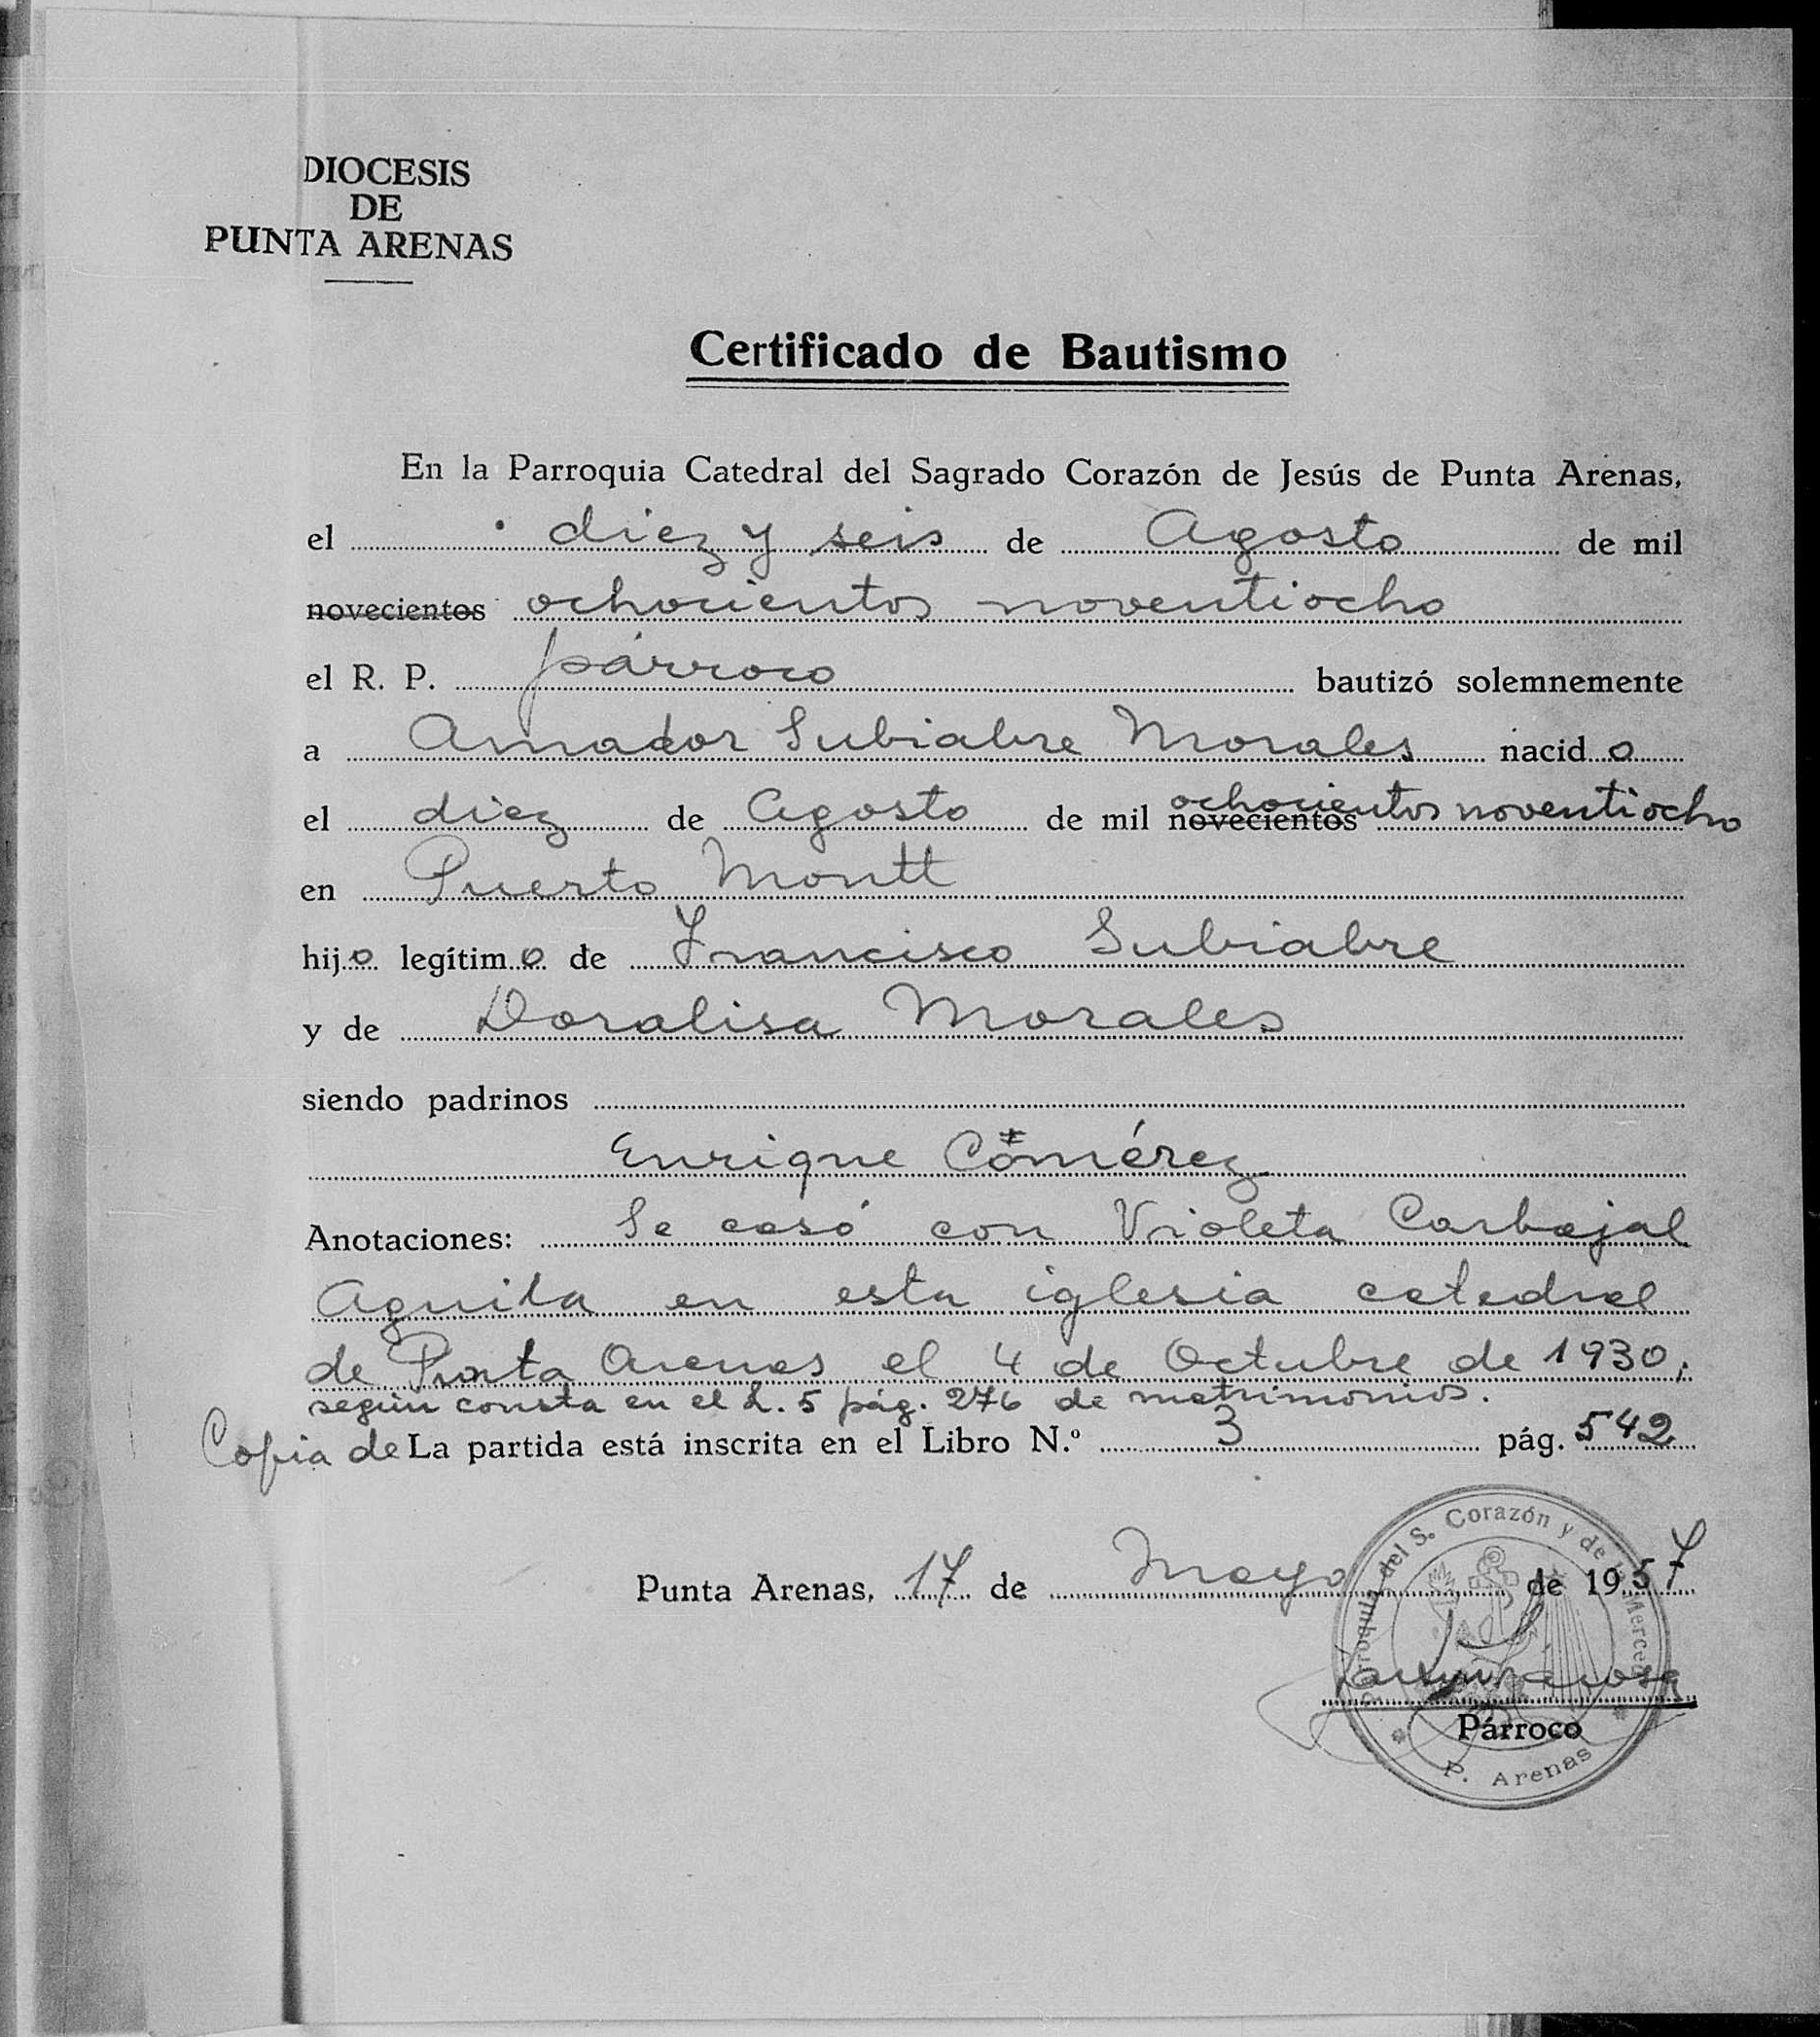 DIOCESIS
DE
PUNTA ARENAS
Certificado de Bautismo
En la Parroquia Catedral del Sagrado Corazón de Jesús de Punta Arenas,
el diez y seis de Agosto de mil
novecientos ochocientos noventiocho
el R. P. párroco bautizó solemnemente
a Amador Subiabre Morales nacido
el diez de Agosto de mil novecientos ochocientos noventiocho
en Puerto Montt
hijo legítimo de Francisco Subiabre
y de Doralisa Morales
siendo padrinos
Enrique
Anotaciones: Se casó con Violeta Carbajal
Aguila en esta iglesia catedral
de Punta Arenas el 4 de Octubre de 1930,
según consta en el L. 5 pág. 276 de matrimonios.
Copia de La partida está inscrita en el Libro N.º 3 pág. 542
Punta Arenas, 17 de Mayo de 1957
Parroquia del S. Corazón y de la Merced
Párroco
P. Arenas